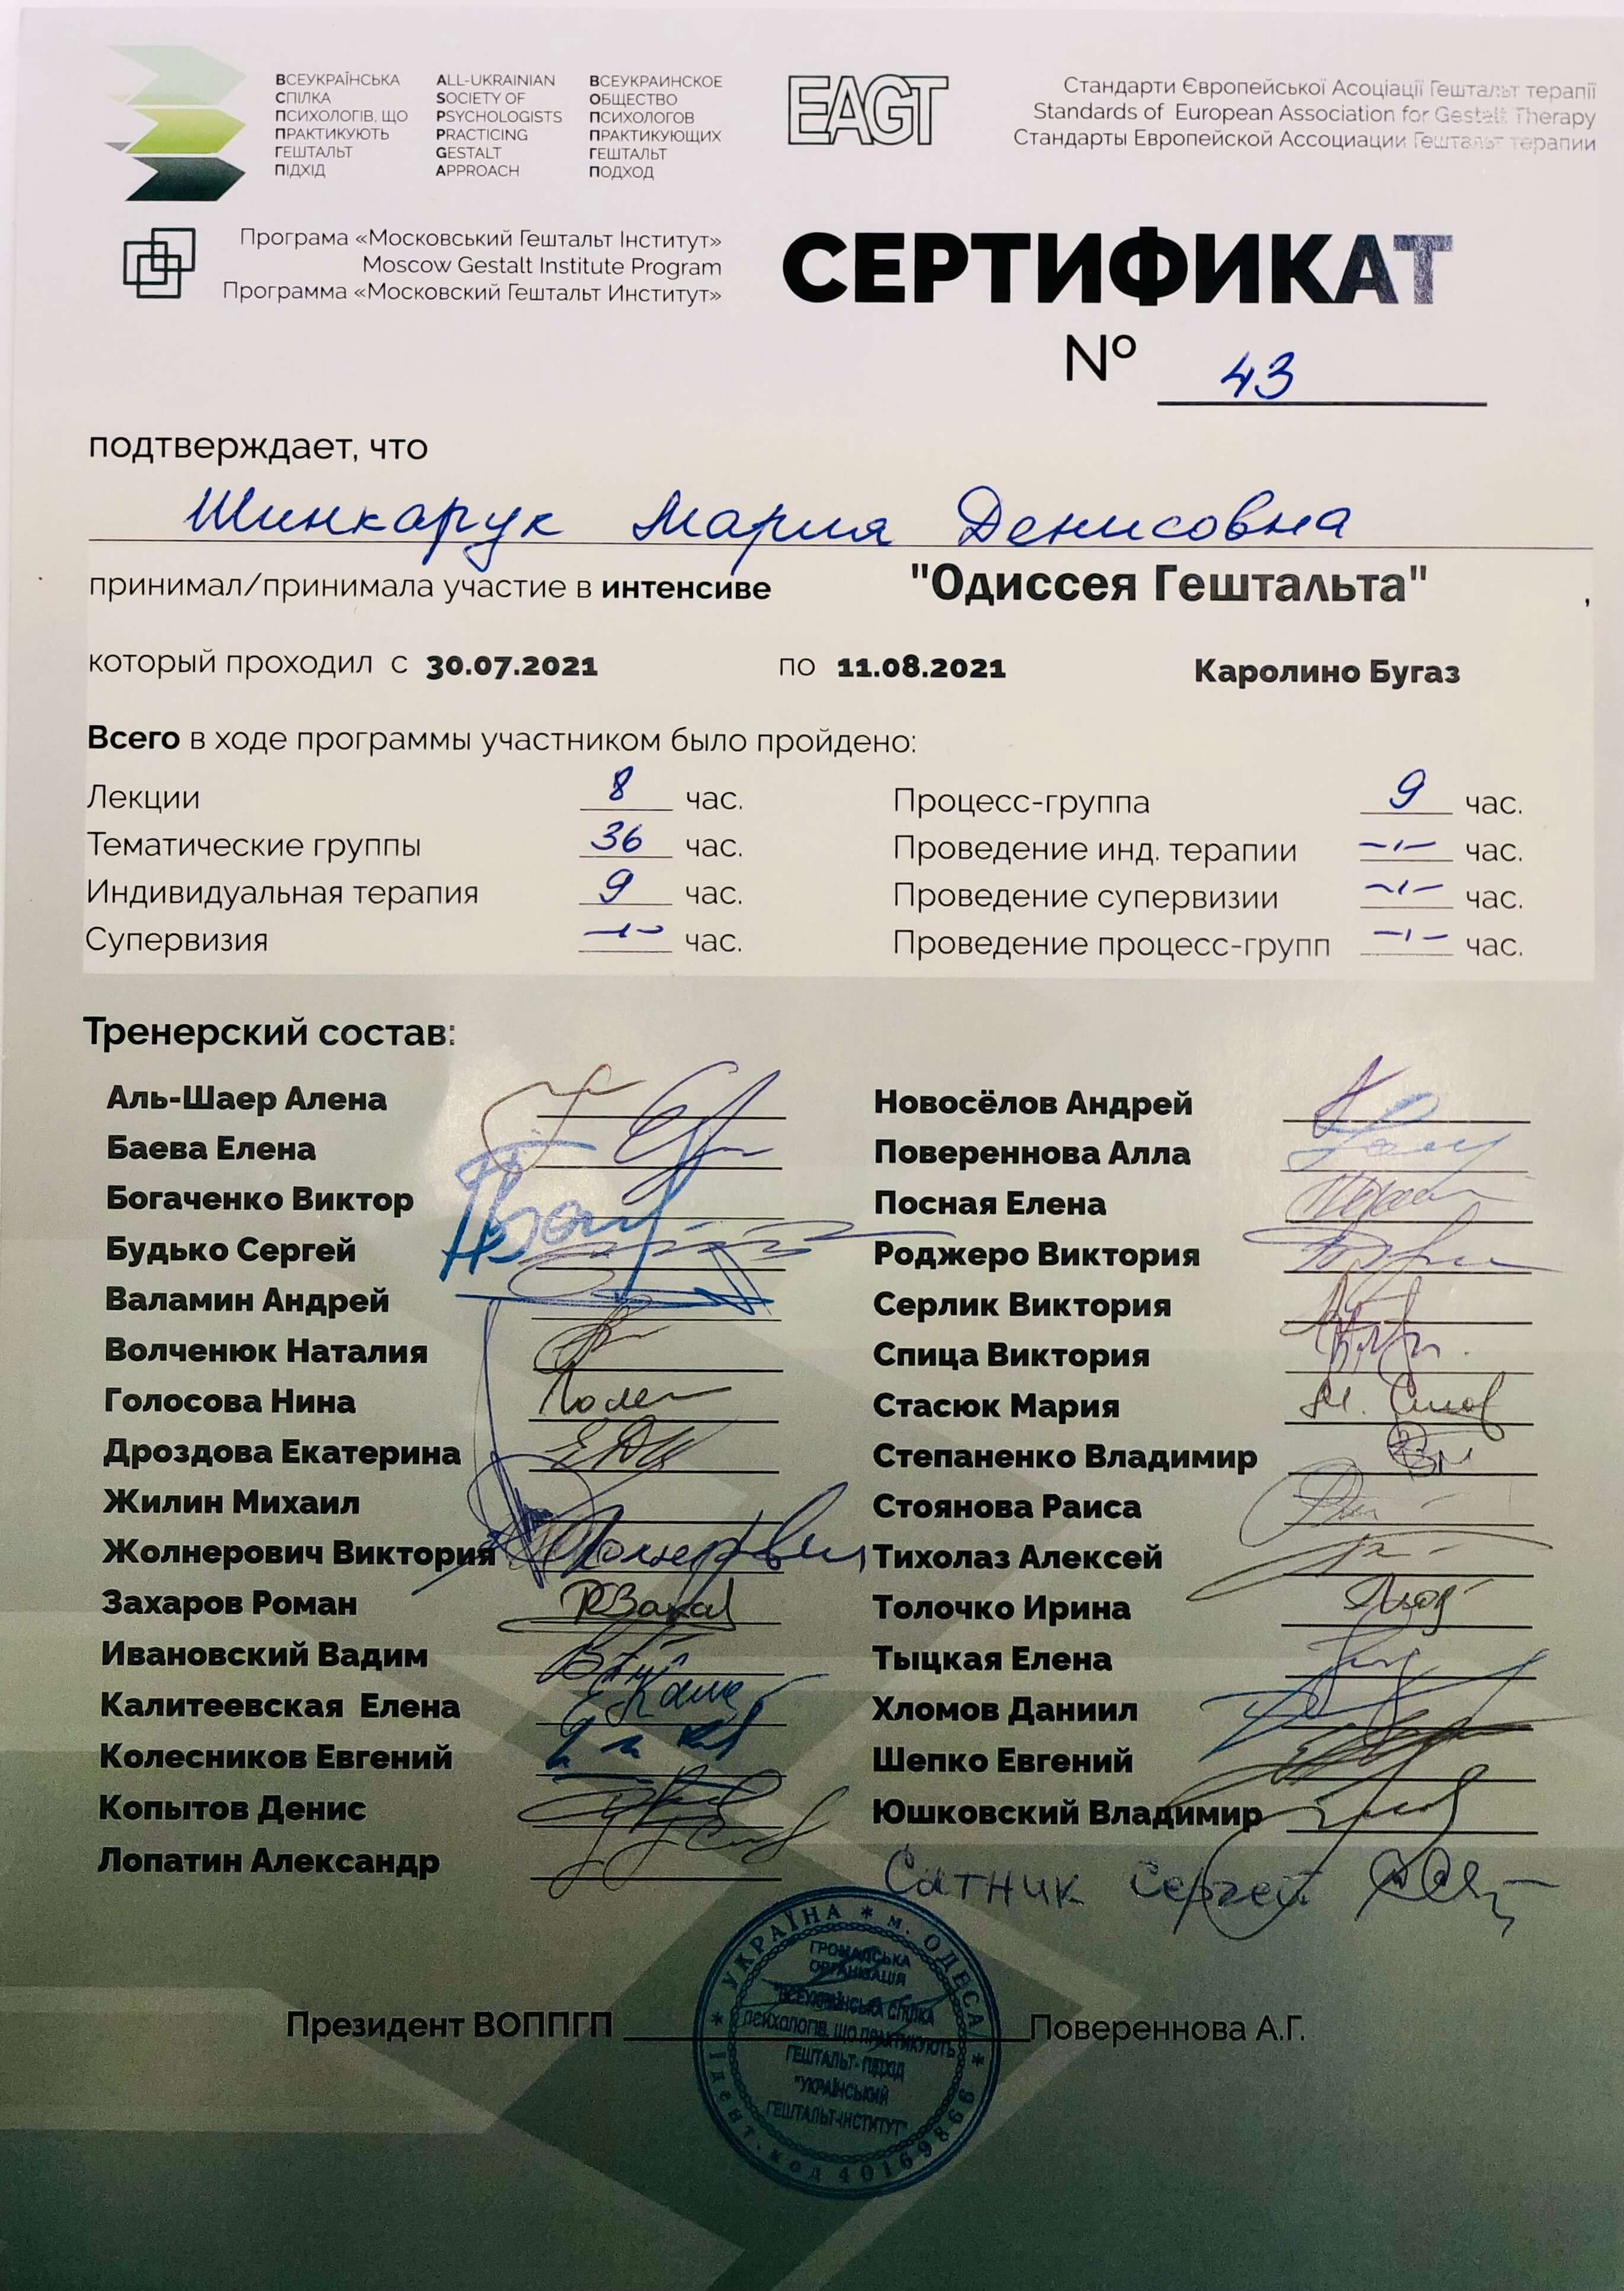 ВСЕУКРАЇНСЬКА
СПІЛКА
ПСИХОЛОГІВ, ЩО
ПРАКТИКУЮТЬ
ГЕШТАЛЬТ
ПІДХІД
ALL-UKRAINIAN
SOCIETY OF
PSYCHOLOGISTS
PRACTICING
GESTALT
APPROACH
ВСЕУКРАИНСКОЕ
ОБЩЕСТВО
ПСИХОЛОГОВ
ПРАКТИКУЮЩИХ
ГЕШТАЛЬТ
ПОДХОД
EAGT
Стандарти Європейської Асоціації Гештальт терапії
Standards of European Association for Gestalt Therapy
Стандарты Европейской Ассоциации Гештальт терапии
Програма «Московський Гештальт Інститут»
Moscow Gestalt Institute Program
Программа «Московский Гештальт Институт»
СЕРТИФИКАТ
№ 43
подтверждает, что
Шинкарук Мария Денисовна
принимал/принимала участие в интенсиве "Одиссея Гештальта" ,
который проходил с 30.07.2021 по 11.08.2021 Каролино Бугаз
Всего в ходе программы участником было пройдено:
Лекции 8 час.
Тематические группы 36 час.
Индивидуальная терапия 9 час.
Супервизия час.
Процесс-группа 9 час.
Проведение инд. терапии час.
Проведение супервизии час.
Проведение процесс-групп час.
Тренерский состав:
Аль-Шаер Алена
Баева Елена
Богаченко Виктор
Будько Сергей
Валамин Андрей
Волченюк Наталия
Голосова Нина
Дроздова Екатерина
Жилин Михаил
Жолнерович Виктория
Захаров Роман
Ивановский Вадим
Калитеевская Елена
Колесников Евгений
Копытов Денис
Лопатин Александр
Новосёлов Андрей
Повереннова Алла
Посная Елена
Роджеро Виктория
Серлик Виктория
Спица Виктория
Стасюк Мария
Степаненко Владимир
Стоянова Раиса
Тихолаз Алексей
Толочко Ирина
Тыцкая Елена
Хломов Даниил
Шепко Евгений
Юшковский Владимир
Сатник Сергей
Президент ВОППГП Повереннова А.Г.
* УКРАЇНА * м. ОДЕСА *
Ідент. код 40169866
ГРОМАДСЬКА
ОРГАНІЗАЦІЯ
"ВСЕУКРАЇНСЬКА СПІЛКА
ПСИХОЛОГІВ, ЩО ПРАКТИКУЮТЬ
ГЕШТАЛЬТ-ПІДХІД
"УКРАЇНСЬКИЙ
ГЕШТАЛЬТ-ІНСТИТУТ"